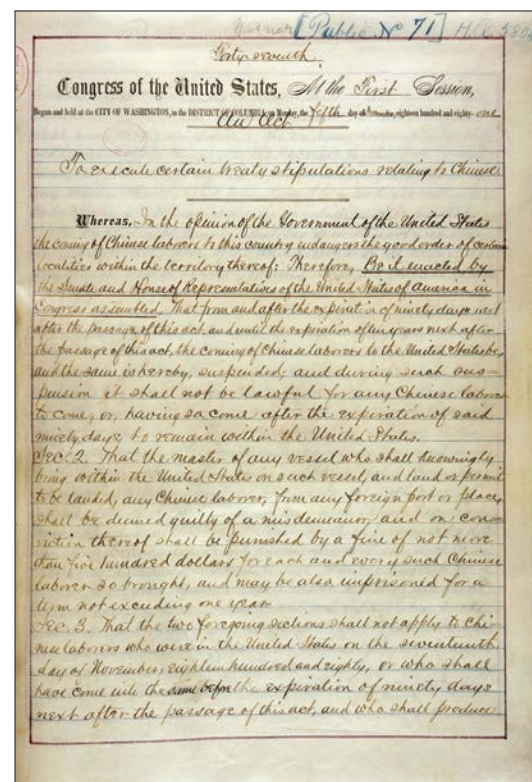 [Public No 71] H.R. 5804
Forty seventh
Congress of the United States, At the First Session,
Begun and held at the CITY OF WASHINGTON, in the DISTRICT OF COLUMBIA, on Monday, the fifth day of December, eighteen hundred and eighty-one
An Act
To execute certain treaty stipulations relating to Chinese.
Whereas, In the opinion of the Government of the United States
the coming of Chinese laborers to this country endangers the good order of certain
localities within the territory thereof: Therefore, Be it enacted by
the Senate and House of Representatives of the United States of America in
Congress assembled, That from and after the expiration of ninety days next
after the passage of this act, and until the expiration of ten years next after
the passage of this act, the coming of Chinese laborers to the United States be,
and the same is hereby, suspended; and during such sus-
pension it shall not be lawful for any Chinese laborer
to come, or, having so come after the expiration of said
ninety days, to remain within the United States.
Sec. 2. That the master of any vessel who shall knowingly
bring within the United States on such vessel, and land or permit
to be landed, any Chinese laborer, from any foreign port or place,
shall be deemed guilty of a misdemeanor, and on con-
viction thereof shall be punished by a fine of not more
than five hundred dollars for each and every such Chinese
laborer so brought, and may be also imprisoned for a
term not exceeding one year.
Sec. 3. That the two foregoing sections shall not apply to Chi-
nese laborers who were in the United States on the seventeenth
day of November, eighteen hundred and eighty, or who shall
have come into the same before the expiration of ninety days
next after the passage of this act, and who shall produce